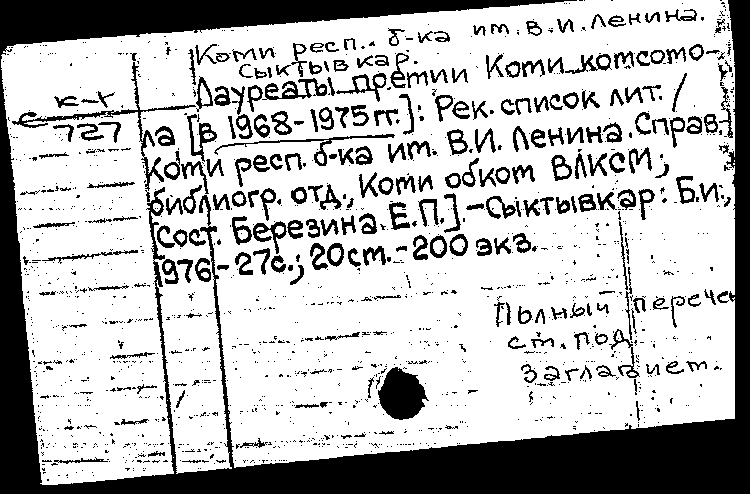 Коми респ. б-ка им. В.И. Ленина.
Сыктывкар.
К-т
727
Лауреаты премии Коми комсомо-
ла [в 1968-1975 гг.]: Рек. список лит. /
Коми респ. б-ка им. В.И. Ленина. Справ.-
библиогр. отд., Коми обком ВЛКСМ;
[Сост. Березина Е.П.].-Сыктывкар: Б.и.,
1976.- 27с.; 20см.-200 экз.
Полный перечен
см. под
заглавием.